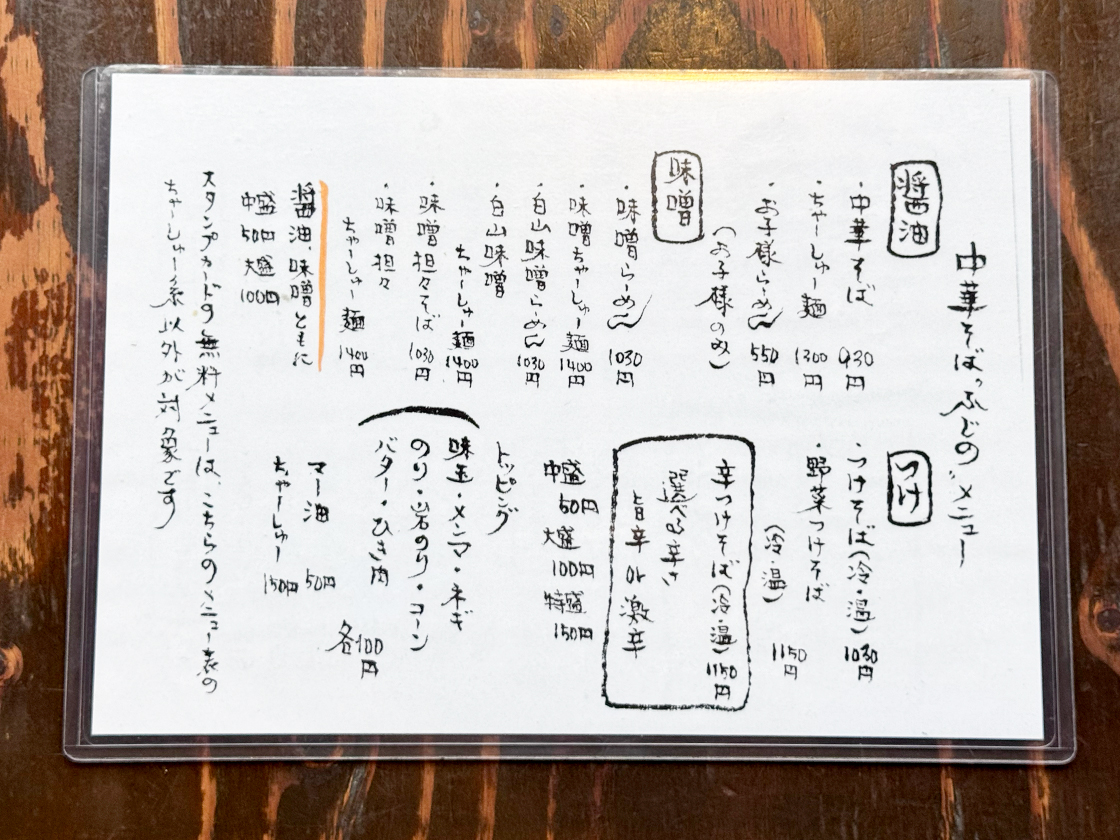 中華そば ふじの メニュー
醤油
・中華そば 930円
・ちゃーしゅー麺 1300円
・お子様らーめん 550円
(お子様のみ)
味噌
・味噌らーめん 1030円
・味噌ちゃーしゅー麺 1400円
・白山味噌らーめん 1030円
・白山味噌
ちゃーしゅー麺 1400円
・味噌担々そば 1030円
・味噌担々
ちゃーしゅー麺 1400円
醤油、味噌ともに
中盛 50円 大盛 100円
つけ
・つけそば(冷・温) 1030円
・野菜つけそば
(冷・温) 1150円
辛つけそば(冷・温) 1150円
選べる辛さ
旨辛 or 激辛
中盛 50円
大盛 100円
特盛 150円
トッピング
味玉・メンマ・ネギ
のり・岩のり・コーン
バター・ひき肉
各100円
マー油 50円
ちゃーしゅー 150円
スタンプカードの無料メニューは、こちらのメニュー表の
ちゃーしゅー系以外が対象です